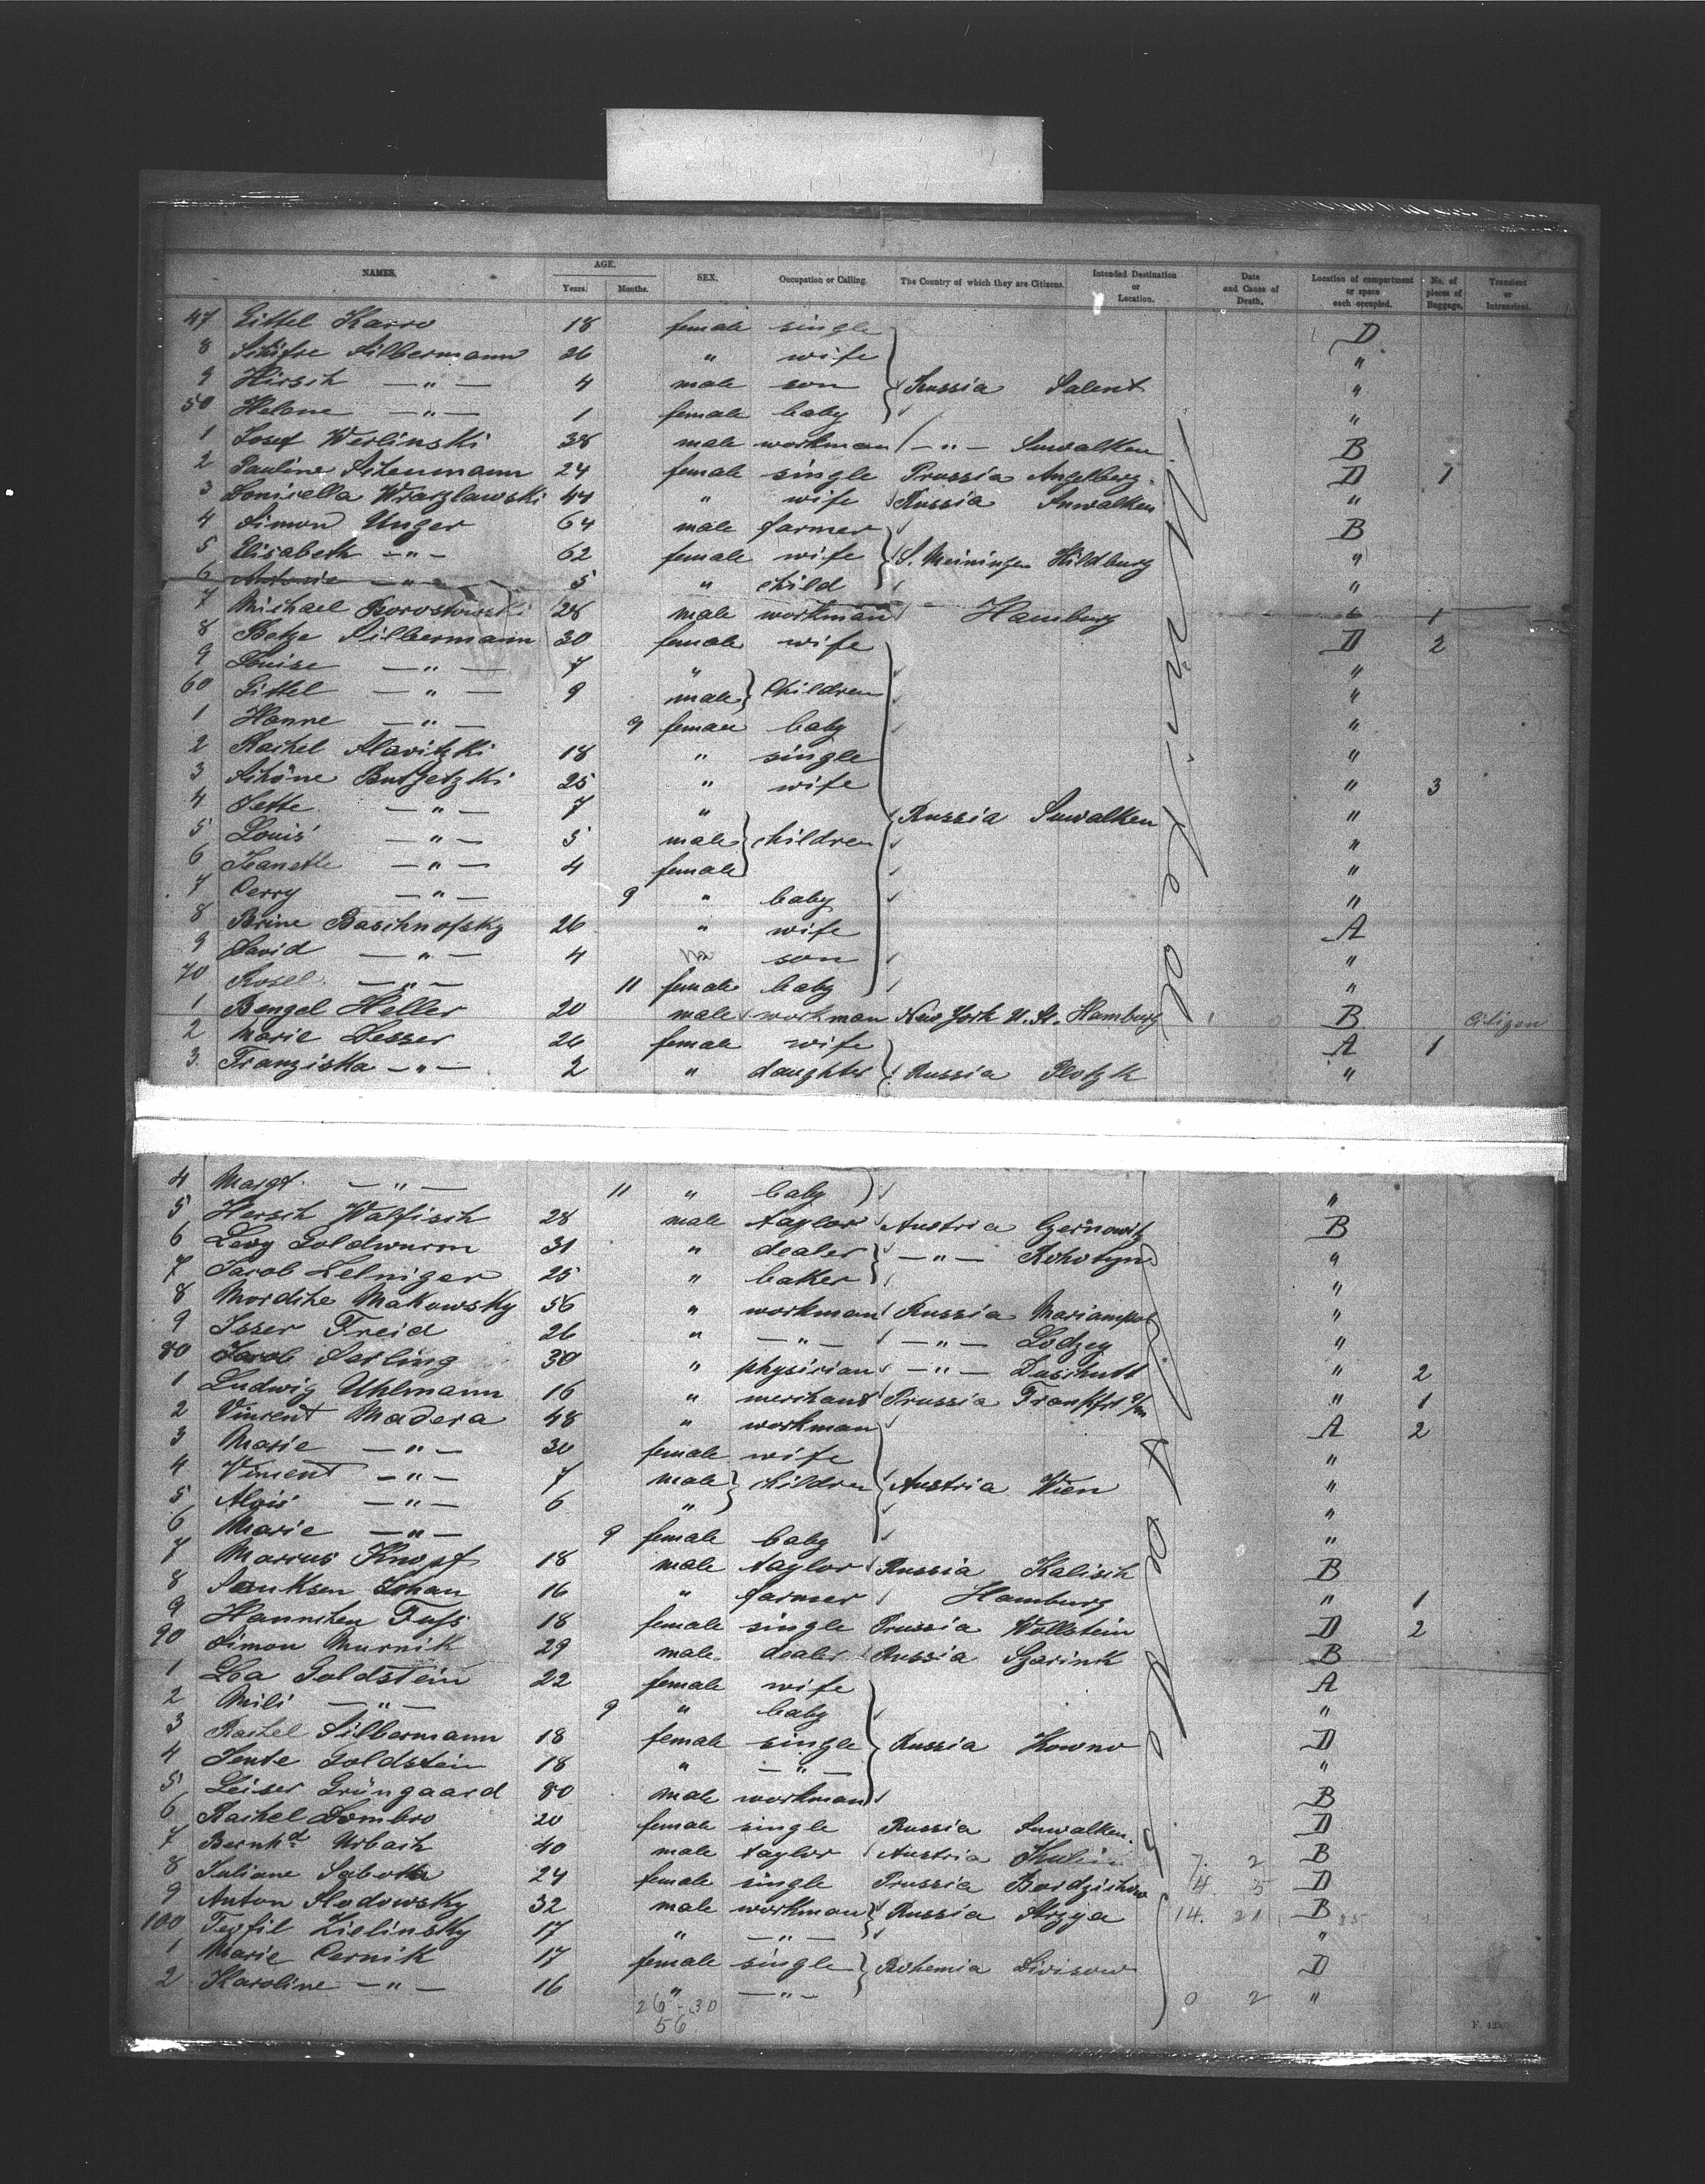 NAMES. AGE. Years. Months. SEX. Occupation or Calling. The Country of which they are Citizens. Intended Destination or Location. Date and Cause of Death. Location of compartment or space each occupied. No. of pieces of Baggage. Transient or Intransient.
47 Eittel Karro 18 female single D
8 Silbermann 26 " wife "
9 Hirsch —"— 4 male son Russia Salent "
50 Helene —"— 1 female baby "
1 Josef Werlinski 38 male workman —"— Suwalken B
2 Pauline 24 female single Prussia Angelberg. D 1
3 Wraszlawski 44 " wife Russia Suwalken "
4 Simon Unger 64 male farmer B
5 Elisabeth —"— 62 female wife S. Meiningen Hildburg "
6 Antonie —"— 5 " child "
7 Michael 28 male workman Hamburg " 1
8 Betze Silbermann 30 female wife D 2
9 Louise —"— 7 " "
60 Gittel —"— 9 male children "
1 Hanne —"— 9 female baby "
2 Rachel Slavitzki 18 " single "
3 Schöne Butzetzki 25 " wife " 3
4 Jette —"— 7 " Russia Suwalken "
5 Louis —"— 5 male children "
6 Jeanette —"— 4 female "
7 Perry —"— 9 " baby "
8 Brine Baschnofsky 26 " wife A
9 David —"— 4 son "
70 Rosel —"— 11 female baby "
1 Bengel Heller 20 male workman New York U. St. Hamburg B Citizen
2 Marie Lesser 26 female wife A 1
3 Franziska —"— 2 " daughter Russia Plotzk "
4 Margt. —"— 11 " baby "
5 Hersch Walfisch 28 male taylor Austria Czernowitz B
6 Levy Goldwurm 31 " dealer —"— Rohotyn "
7 Jacob Letniger 25 " baker "
8 Mordche Makowsky 56 " workman Russia Mariampol "
9 Isser Freid 26 " —"— —"— Lodzey "
80 Jacob Serling 30 " physician —"— " 2
1 Ludwig Uhlmann 16 " merchant Prussia Frankfrt a/m " 1
2 Vincent Madera 48 " workman A 2
3 Marie —"— 30 female wife "
4 Vincent —"— 7 male children Austria Wien "
5 Alois —"— 6 " "
6 Marie —"— 9 female baby "
7 Marcus Knopf 18 male taylor Russia Kalisch B
8 Johan 16 " farmer Hamburg " 1
9 Hannchen Fuss 18 female single Prussia Wollstein D 2
90 Simon Murnik 29 male dealer Russia B
1 Lea Goldstein 22 female wife A
2 Mili —"— 9 " baby "
3 Rachel Silbermann 18 female single Russia Kowno D
4 Jente Goldstein 18 " —"— "
5 Leiser Grüngaard 80 male workman B
6 Rachel Dombro 20 female single Russia Suwalken. D
7 Bernhd. Urbach 40 male taylor Austria 7. 2 B
8 Juliane Sabotta 24 female single Prussia 4. 5 D
9 Anton Slodowsky 32 male workman Russia 14. 21 B 85
100 Teofil Zielinsky 17 " —"— "
1 Marie Cernik 17 female single Bohemia Divisow D
2 Karoline —"— 16 " —"— 0 2 "
26-30
56